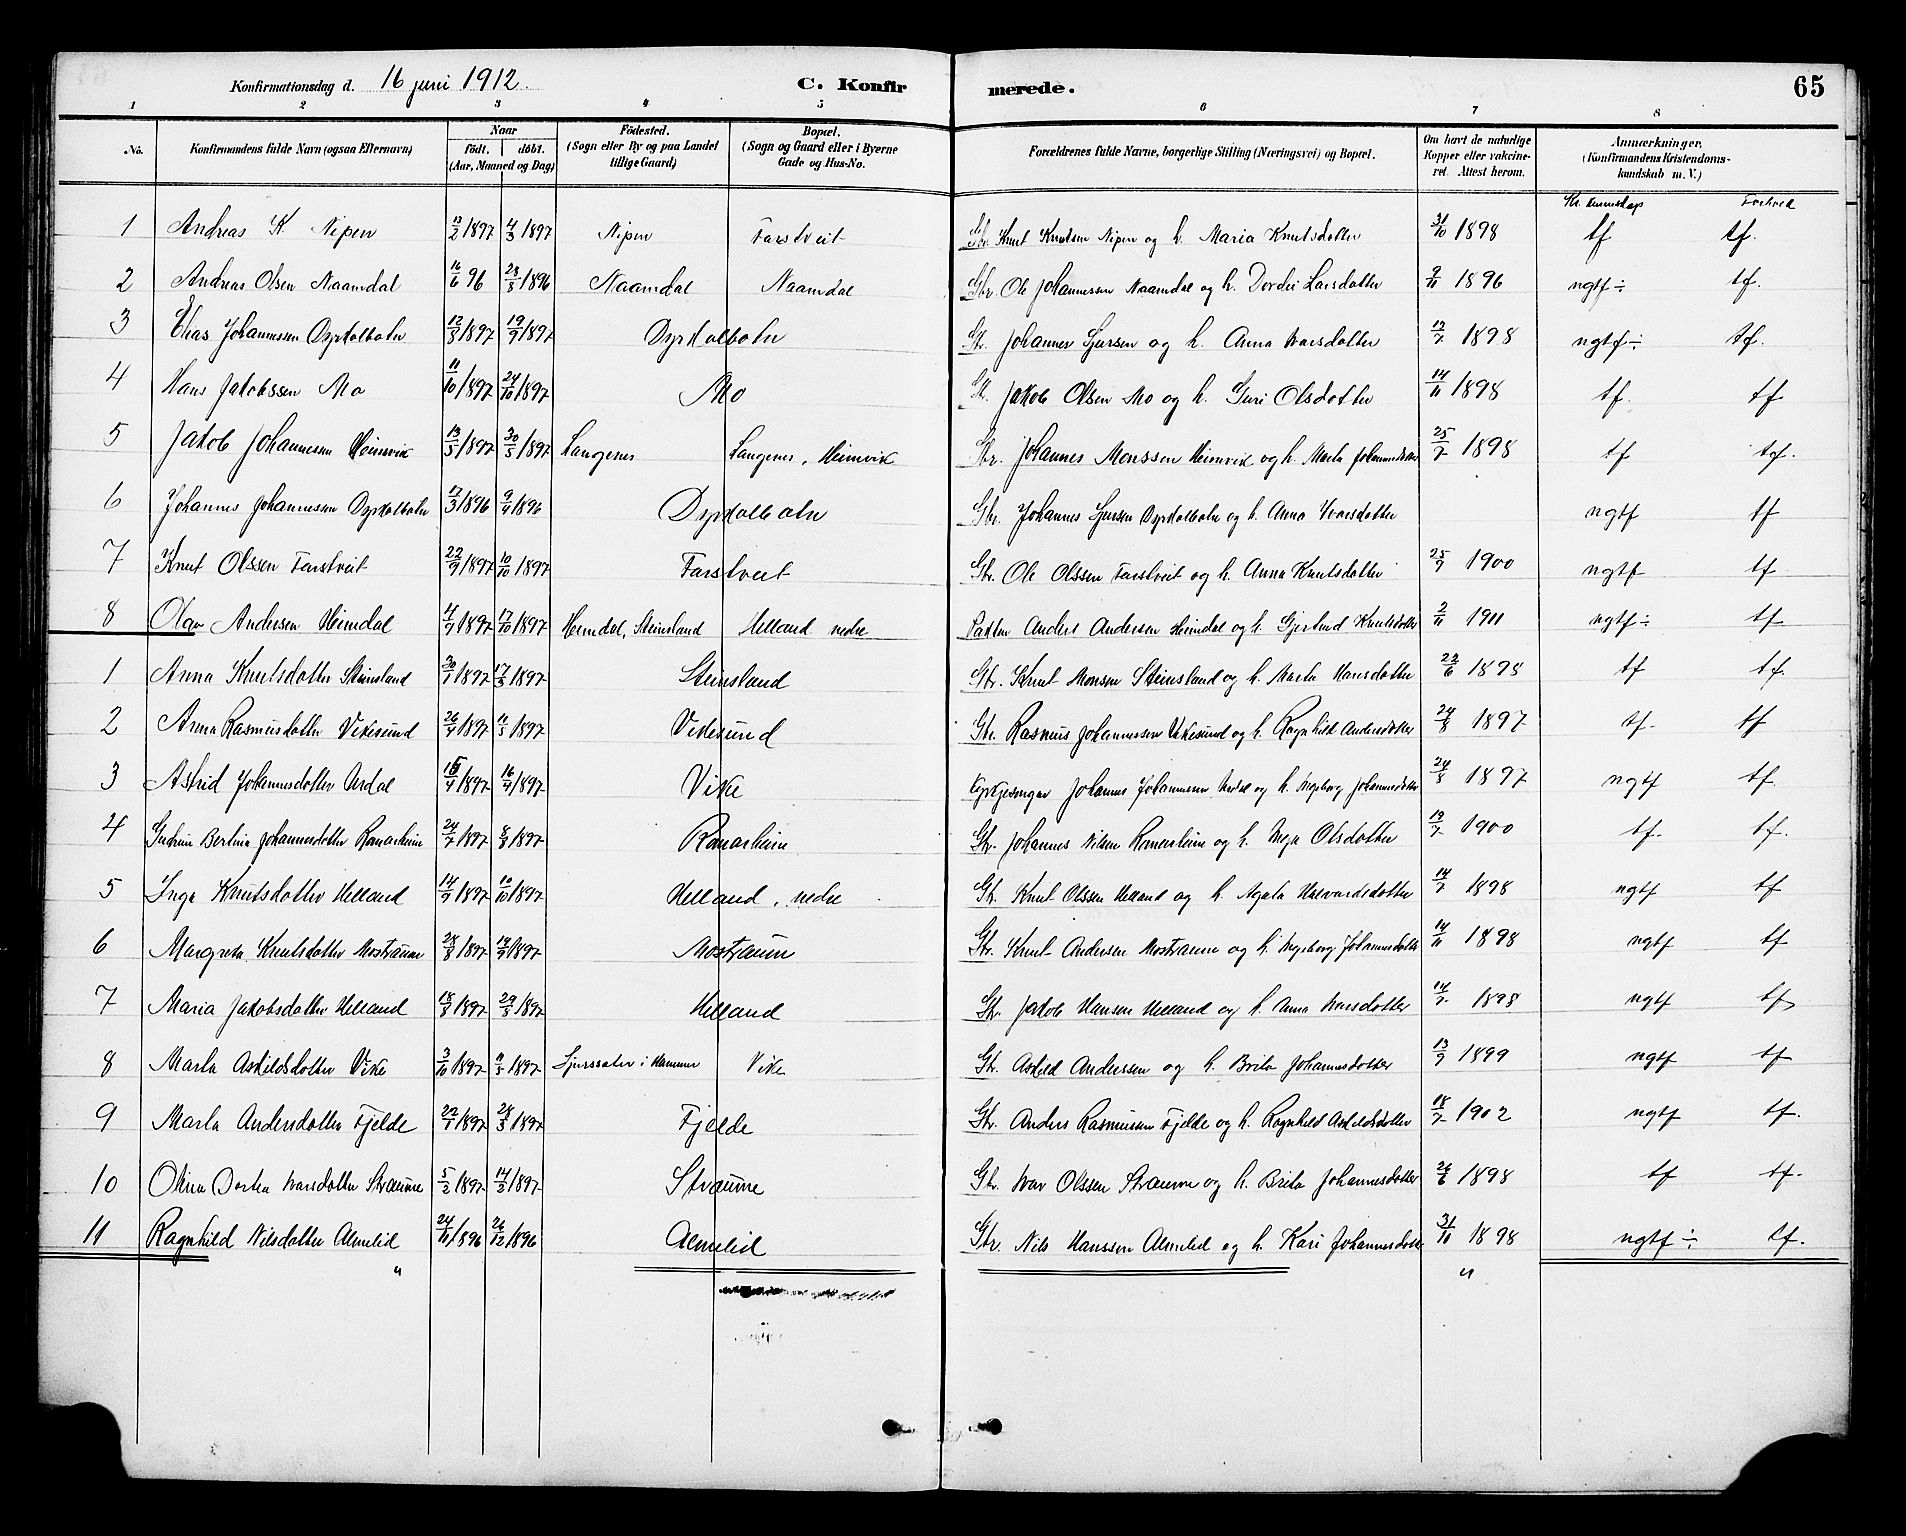 Konfirmationsdag d. 16 juni 1912. C. Konfirmerede. 65
1 2 3 4 5 6 7 8
No. Konfirmandens fulde Navn (ogsaa Efternavn) Naar födt. döbt. (Aar, Maaned og Dag) Födested. (Sogn eller By og paa Landet tillige Gaard) Bopæl. (Sogn og Gaard eller i Byerne Gade og Hus-No. Forældrenes fulde Navne, borgerlige Stilling (Næringsvei) og Bopæl. Om havt de naturlige Kopper eller vakcineret. Attest herom. Anmærkninger, (Konfirmandens Kristendomskundskab m. V.)
Kr. kunnskap Forhold
1 Andreas K. Nipen 13/2 1897 4/3 1897 Nipen Farstveit Gbr. Knut Knutsen Nipen og h. Maria Knutsdotter 31/10 1898 tf tf.
2 Andreas Olsen Naamdal 16/6 96 23/8 1896 Naamdal Naamdal Gbr. Ole Johannessen Naamdal og h. Dordei Larsdotter 9/11 1896 ngtf ÷ tf.
3 Elias Johannessen Dyrkolbotn 12/8 1897 19/9 1897 Dyrkolbotn Gbr. Johannes Sjursen og h. Anna Ivarsdotter 12/7 1898 ngtf ÷ tf.
4 Hans Jakobssen Mo 11/10 1897 24/10 1897 Mo Gbr. Jakob Olsen Mo og h. Guri Olsdotter 14/11 1898 tf. tf
5 Jakob Johannessen Heimvik 13/5 1897 30/5 1897 Langenes Langenes, Heimvik Gbr. Johannes Monssen Heimvik og h. Marta Johannesdotter 25/7 1898 tf tf.
6 Johannes Johannessen Dyrkolbotn 17/3 1896 9/4 1896 Dyrkolbotn Gbr. Johannes Sjursen Dyrkolbotn og h. Anna Ivarsdotter ngtf tf
7 Knut Olssen Farstveit 22/9 1897 10/10 1897 Farstveit Gbr. Ole Olssen Farstveit og h. Anna Knutsdotter 25/9 1900 ngtf tf
8 Olav Andersen Heimdal 4/9 1897 17/10 1897 Heimdal, Steinsland Helland nedre Anders Andersen Heimdal og h. Gjertrud Knutsdotter 2/11 1911 ngtf ÷ tf
1 Anna Knutsdotter Steinsland 30/1 1897 17/3 1897 Steinsland Gbr. Knut Monsen Steinsland og h. Marta Hansdotter 22/6 1898 tf tf.
2 Anna Rasmusdotter Vikesund 26/4 1897 11/5 1897 Vikesund Gbr. Rasmus Johannessen Vikesund og h. Ragnhild Andersdotter 24/8 1897 tf. tf
3 Astrid Johannesdotter Ardal 15/4 1897 16/4 1897 Vike Kyrkjesongar Johannes Johannessen Ardal og h. Ingeborg Johannesdotter 24/8 1897 ngtf tf.
4 Gudrun Bertina Johannesdotter Romarheim 24/7 1897 8/8 1897 Romarheim Gbr. Johannes Nilsen Romarheim og h. Olsdotter 13/7 1900 tf. tf.
5 Inga Knutsdotter Helland 14/9 1897 10/10 1897 Helland, nedre Gbr. Knut Olssen Helland og h. Agata Halvardsdotter 14/7 1898 ngtf tf
6 Margreta Knutsdotter Mostraum 28/8 1897 19/9 1897 Mostraum Gbr. Knut Andersen Mostraum og h. Ingeborg Johannesdotter 14/11 1898 ngtf tf
7 Maria Jakobsdotter Helland 18/3 1897 29/3 1897 Helland Gbr. Jakob Hansen Helland og h. Anna Ivarsdotter 14/7 1898 ngtf tf
8 Marta Askildsdotter Vike 3/10 1897 11/5 1897 i Hammer Vike Gbr. Askild Anderssen og h. Brita Johannesdotter 13/9 1899 ngtf tf
9 Marta Andersdotter Fjelde 22/1 1897 28/3 1897 Fjelde Gbr. Anders Rasmussen Fjelde og h. Ragnhild Askildsdotter 18/7 1902 ngtf tf.
10 Olina Dortea Ivarsdotter Straume 5/2 1897 14/2 1897 Straume Gbr. Ivar Olssen Straume og h. Brita Johannesdotter 26/6 1898 tf tf.
11 Ragnhild Nilsdotter Almelid 24/11 1896 26/12 1896 Almelid Gbr. Nils Hanssen Almelid og h. Kari Johannesdotter 31/10 1898 ngtf ÷ tf.
" "